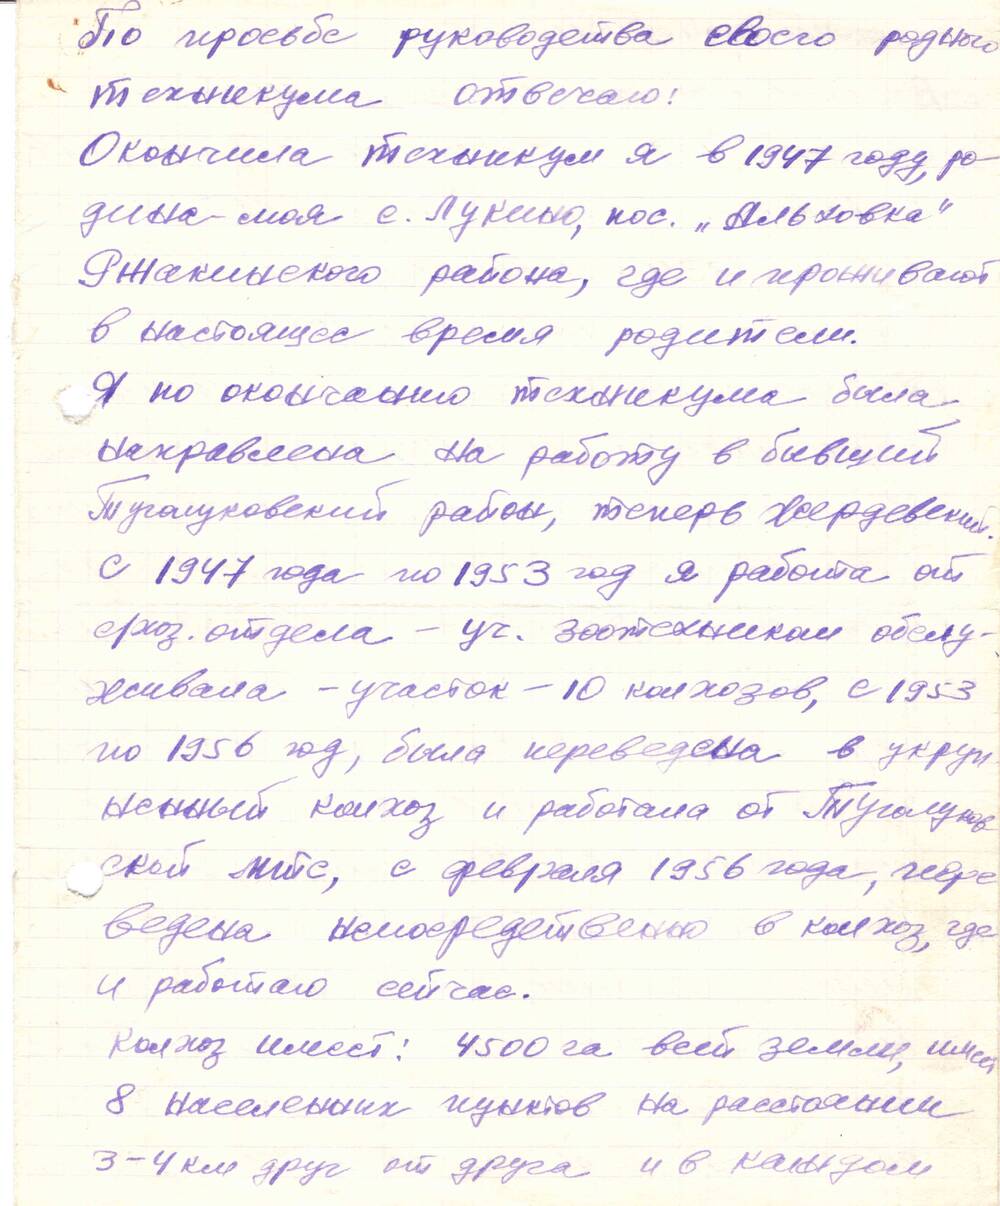 По просьбе руководства своего родного
техникума отвечаю:
Окончила техникум я в 1947 году, ро-
дина-моя с. Лукино, пос. „Альховка"
Ржакинского района, где и проживают
в настоящее время родители.
Я по окончанию техникума была
направлена на работу в бывший
Туголуковский район, теперь Жердевский.
С 1947 года по 1953 год я работа от
с/хоз. отдела - уч. зоотехником обслу-
живала - участок - 10 колхозов, с 1953
по 1956 год, была переведена в укруп
ненный колхоз и работала от Туголуков
ской мтс, с февраля 1956 года, пере
ведена непосредственно в колхоз, где
и работаю сейчас.
Колхоз имеет: 4500 га всей земли, имеет
8 населенных пунктов на расстоянии
3-4 км друг от друга и в каждом